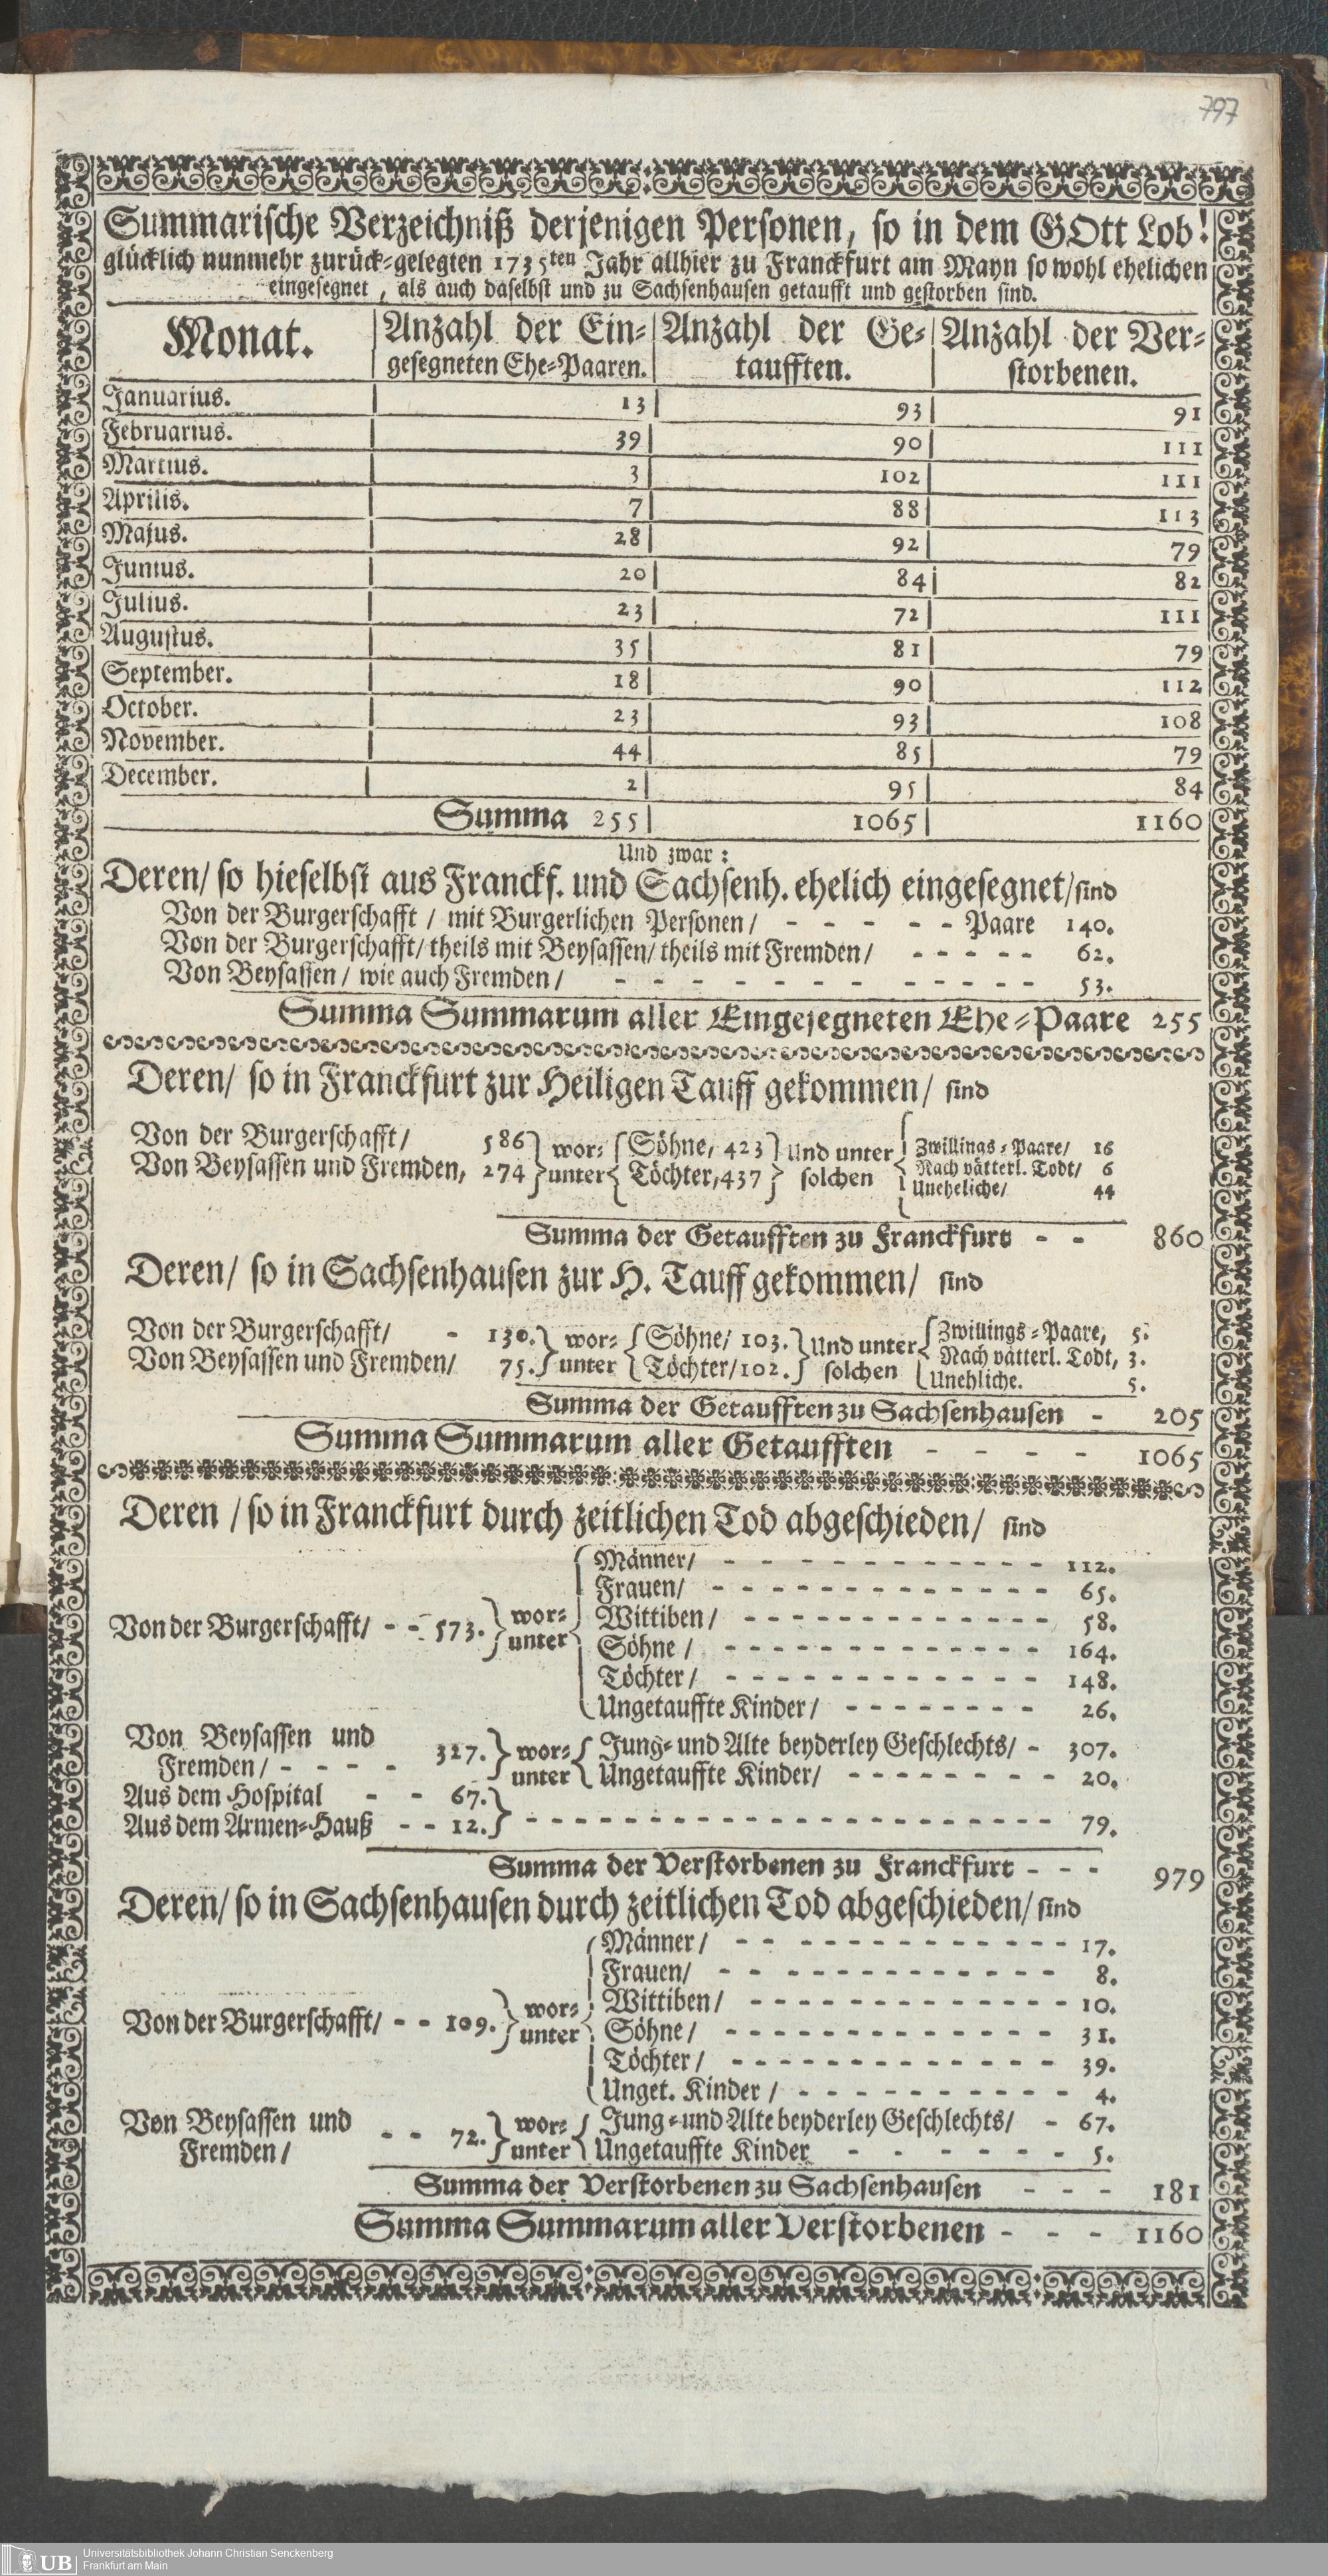 797
Summarische Verzeichniß derjenigen Personen, so in dem GOtt Lob!
glücklich nunmehr zurück-gelegten 1735ten Jahr allhier zu Franckfurt am Mayn so wohl ehelichen
eingesegnet, als auch daselbst und zu Sachsenhausen getaufft und gestorben sind.
Monat. Anzahl der Ein- Anzahl der Ge- Anzahl der Ver-
gesegneten Ehe-Paaren. taufften. storbenen.
Januarius. 13 93 91
Februarius. 39 90 111
Martius. 3 102 111
Aprilis. 7 88 113
Majus. 28 92 79
Junius. 20 84 82
Julius. 23 72 111
Augustus. 35 81 79
September. 18 90 112
October. 23 93 108
November. 44 85 79
December. 2 95 84
Summa 255 1065 1160
Und zwar:
Deren/ so hieselbst aus Franckf. und Sachsenh. ehelich eingesegnet/ sind
Von der Burgerschafft / mit Burgerlichen Personen/ - - - - - Paare 140.
Von der Burgerschafft/ theils mit Beysassen/ theils mit Fremden/ - - - - - 62.
Von Beysassen/ wie auch Fremden/ - - - - - - - - - - - 53.
Summa Summarum aller Eingesegneten Ehe-Paare 255
Deren/ so in Franckfurt zur Heiligen Tauff gekommen/ sind
Von der Burgerschafft/ 586 wor- Söhne, 423 Und unter Zwillings-Paare/ 16
Von Beysassen und Fremden, 274 unter Töchter, 437 solchen Nach vätterl. Todt/ 6
Uneheliche/ 44
Summa der Getaufften zu Franckfurt - - 860
Deren/ so in Sachsenhausen zur H. Tauff gekommen/ sind
Von der Burgerschafft/ - 130. wor- Söhne/ 103. Und unter Zwillings-Paare, 5.
Von Beysassen und Fremden/ 75. unter Töchter/ 102. solchen Nach vätterl. Todt, 3.
Unehliche. 5.
Summa der Getaufften zu Sachsenhausen - 205
Summa Summarum aller Getaufften - - - - 1065
Deren / so in Franckfurt durch zeitlichen Tod abgeschieden/ sind
Männer/ - - - - - - - - - - - - 112.
Frauen/ - - - - - - - - - - - - 65.
Von der Burgerschafft/ - - 573. wor-unter Wittiben/ - - - - - - - - - - - 58.
Söhne / - - - - - - - - - - - - 164.
Töchter/ - - - - - - - - - - - - 148.
Ungetauffte Kinder/ - - - - - - - - 26.
Von Beysassen und
Fremden/ - - - - 327. wor- Jung- und Alte beyderley Geschlechts/ - 307.
unter Ungetauffte Kinder/ - - - - - - - - 20.
Aus dem Hospital - - 67.
Aus dem Armen-Hauß - - 12. - - - - - - - - - - - - - - - - - - - - 79.
Summa der Verstorbenen zu Franckfurt - - - 979
Deren/ so in Sachsenhausen durch zeitlichen Tod abgeschieden/ sind
Männer/ - - - - - - - - - - - - 17.
Frauen/ - - - - - - - - - - - - 8.
Von der Burgerschafft/ - - 109. wor-unter Wittiben/ - - - - - - - - - - - 10.
Söhne/ - - - - - - - - - - - - 31.
Töchter/ - - - - - - - - - - - - 39.
Unget. Kinder / - - - - - - - - - - 4.
Von Beysassen und
Fremden/ - - 72. wor- Jung- und Alte beyderley Geschlechts/ - 67.
unter Ungetauffte Kinder - - - - - - 5.
Summa der Verstorbenen zu Sachsenhausen - - - 181
Summa Summarum aller Verstorbenen - - - 1160
UB Universitätsbibliothek Johann Christian Senckenberg
Frankfurt am Main